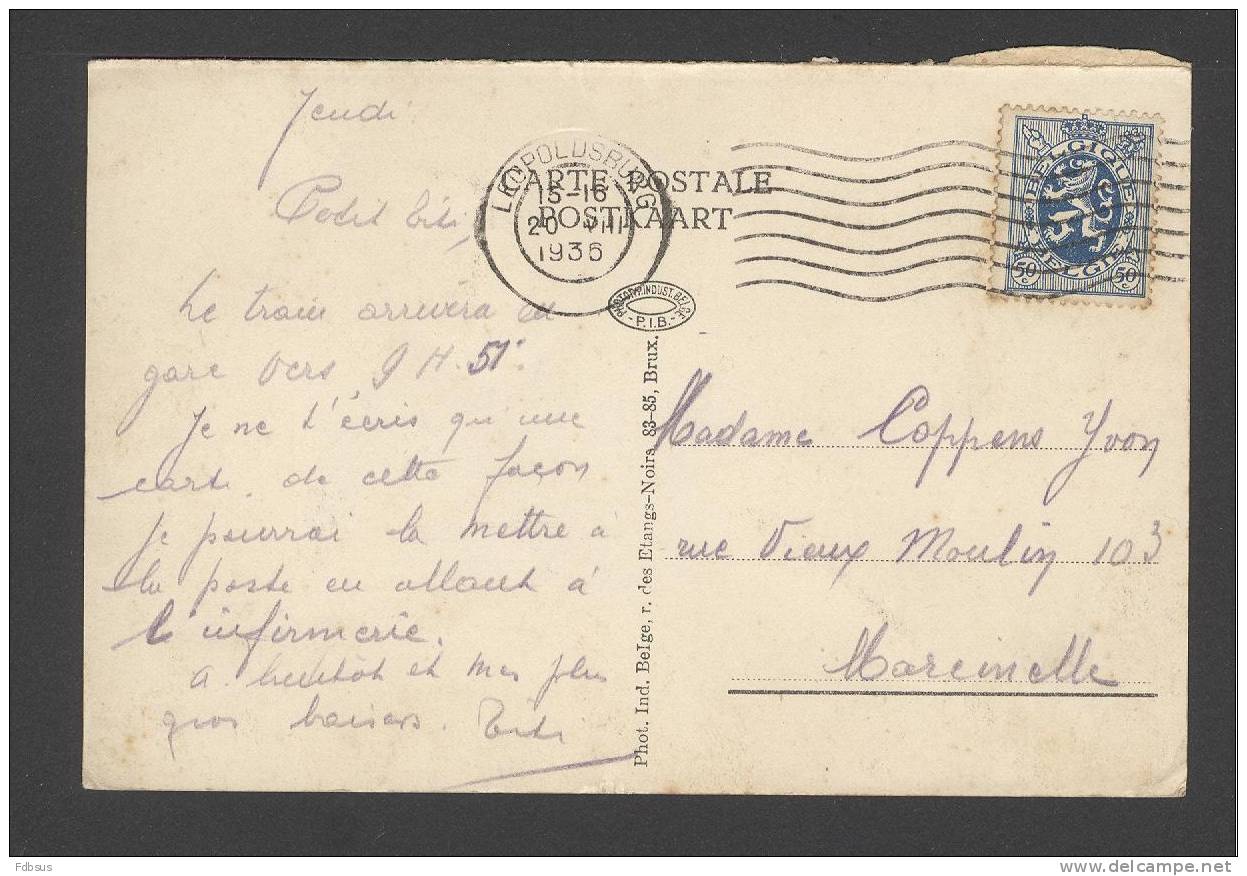 Jeudi
Petit titi,
Le train arrivera en
gare vers 9 H. 51'.
Je ne t'écris qu'une
carte. de cette façon
je pourrai la mettre à
la poste en allant à
l'infirmerie.
A bientôt et mes plus
gros baisers. Titi
LEOPOLDSBURG
15-16
20 VIII
1936
CARTE POSTALE
POSTKAART
BELGIQUE
BELGIE
50 c 50 c
PHOTOTYP. INDUST. BELGE
- P.I.B. -
Phot. Ind. Belge, r. des Etangs-Noirs 83-85, Brux.
Madame Coppens Yvon
rue Vieux Moulin 103
Marcinelle
Fdbsus
www.delcampe.net